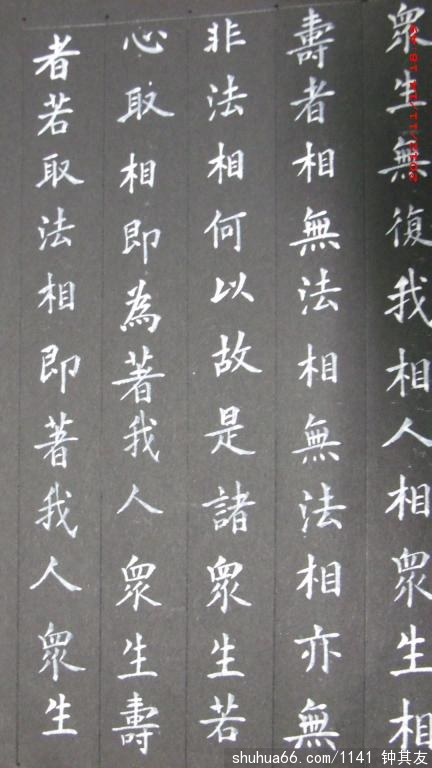 眾生無復我相人相眾生相
壽者相無法相無法相亦無
非法相何以故是諸眾生若
心取相即為著我人眾生壽
者若取法相即著我人眾生
shuhua66.com/1141 钟其友